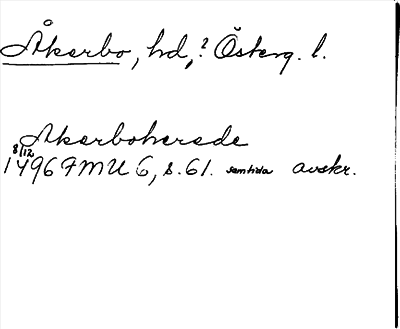 Åkerbo, hd,? Österg. l.
Akerboherede
8/12
1496 FMU 6, s. 61. samtida avskr.